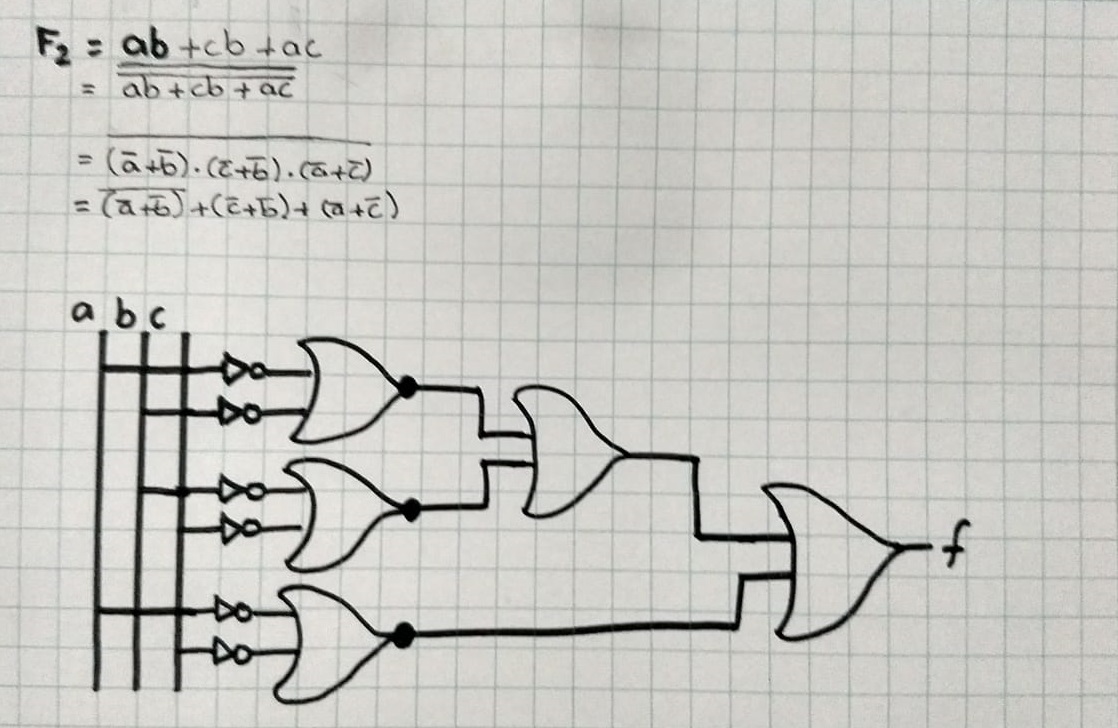 F₂ = ab + cb + ac
= \overline{\overline{ab + cb + ac}}
= \overline{(a̅+b̅).(c̅+b̅).(a̅+c̅)}
= \overline{(a̅+b̅)}+(c̅+b̅)+(a+c̅)
a b c
f